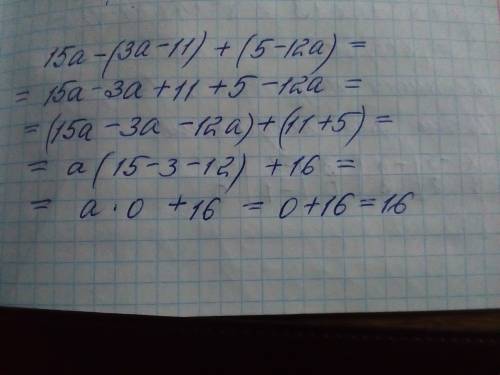 15a-(3a-11)+(5-12a)=
=15a-3a+11+5-12a=
=(15a-3a-12a)+(11+5)=
=a(15-3-12)+16=
=a·0+16=0+16=16